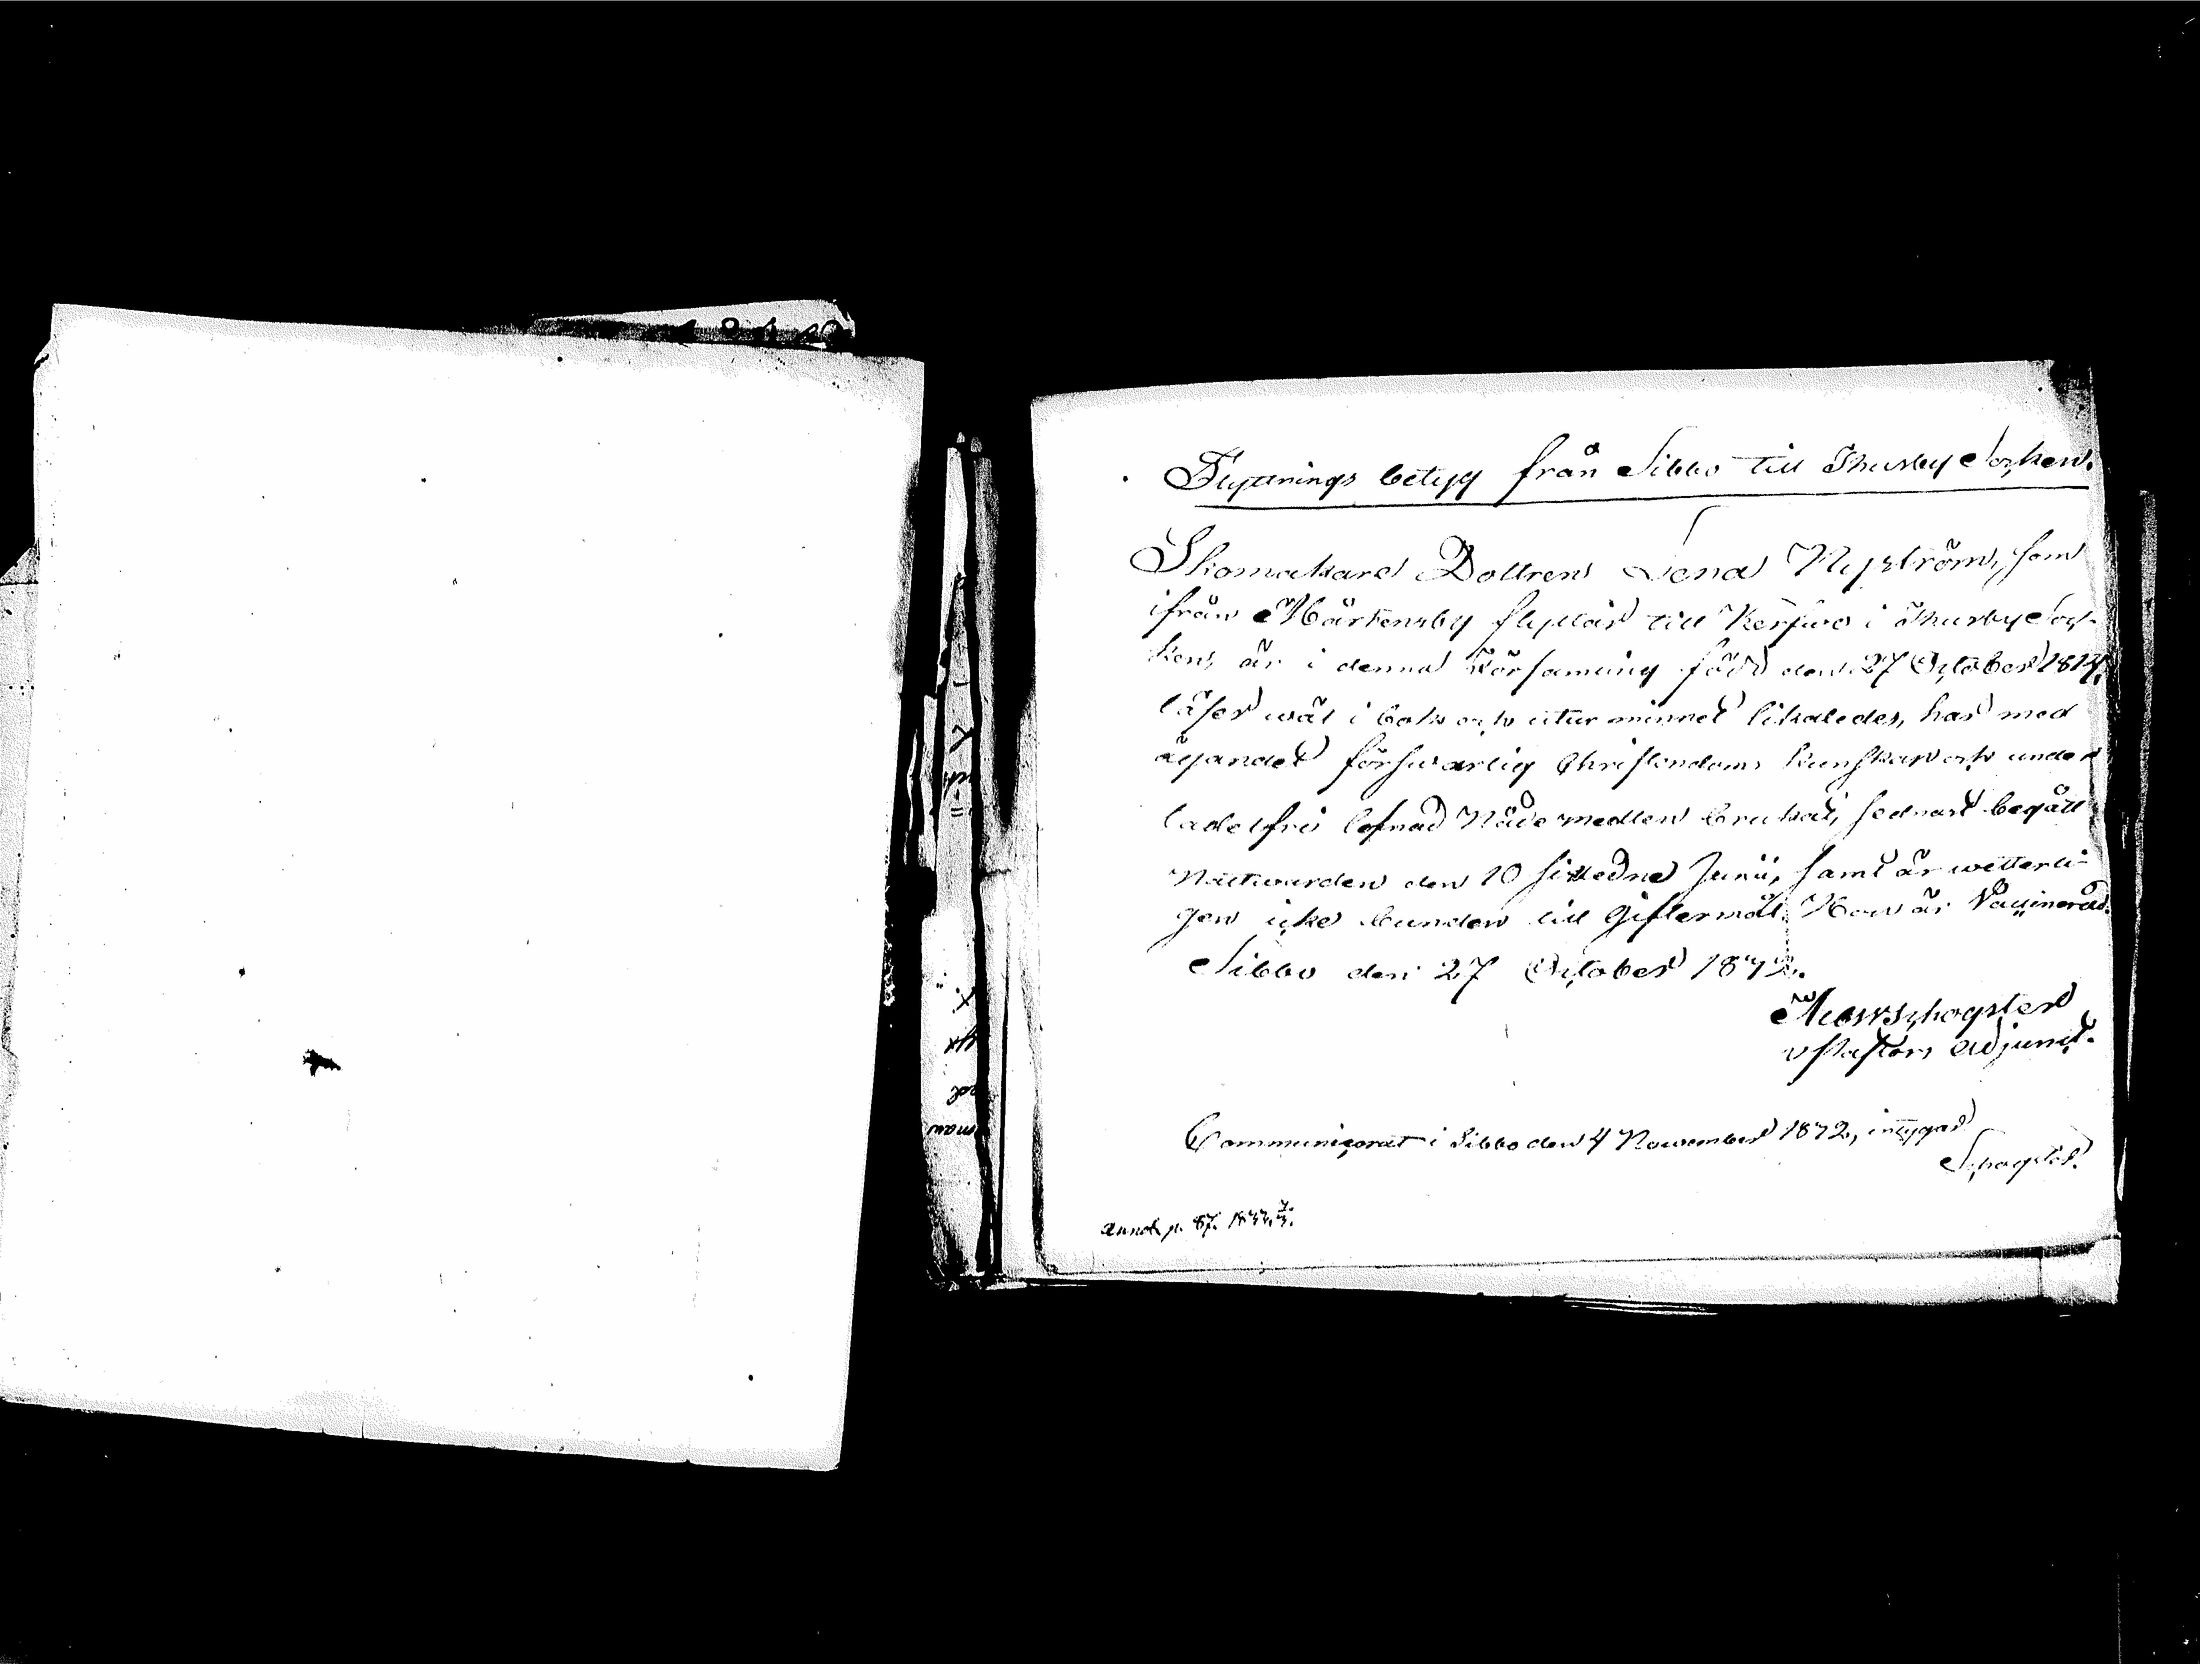 Flyttnings betyg från Sibbo till Thusby Socken.
Skomakare Dottren Lena Nyström, som
ifrån Mårtensby flyttar till Kerfwo i Thusby Soc-
ken, är i denna Församling född den 27 October 1814,
läser wäl i bok och utur minnet likaledes, har med
ägandet försvarlig Christendoms kunskap och under
ladelfri lefnad Nådemedlen brukat, sednast begått
Nattwarden den 10 sistledne Junii, samt är wetterli-
gen icke bunden till Giftermål. Hon är Vaccinerad.
Sibbo den 27 October 1832.
v Pastors Adjunct.
Communicerat i Sibbo den 4 November 1832, intygar
annot p. 87.